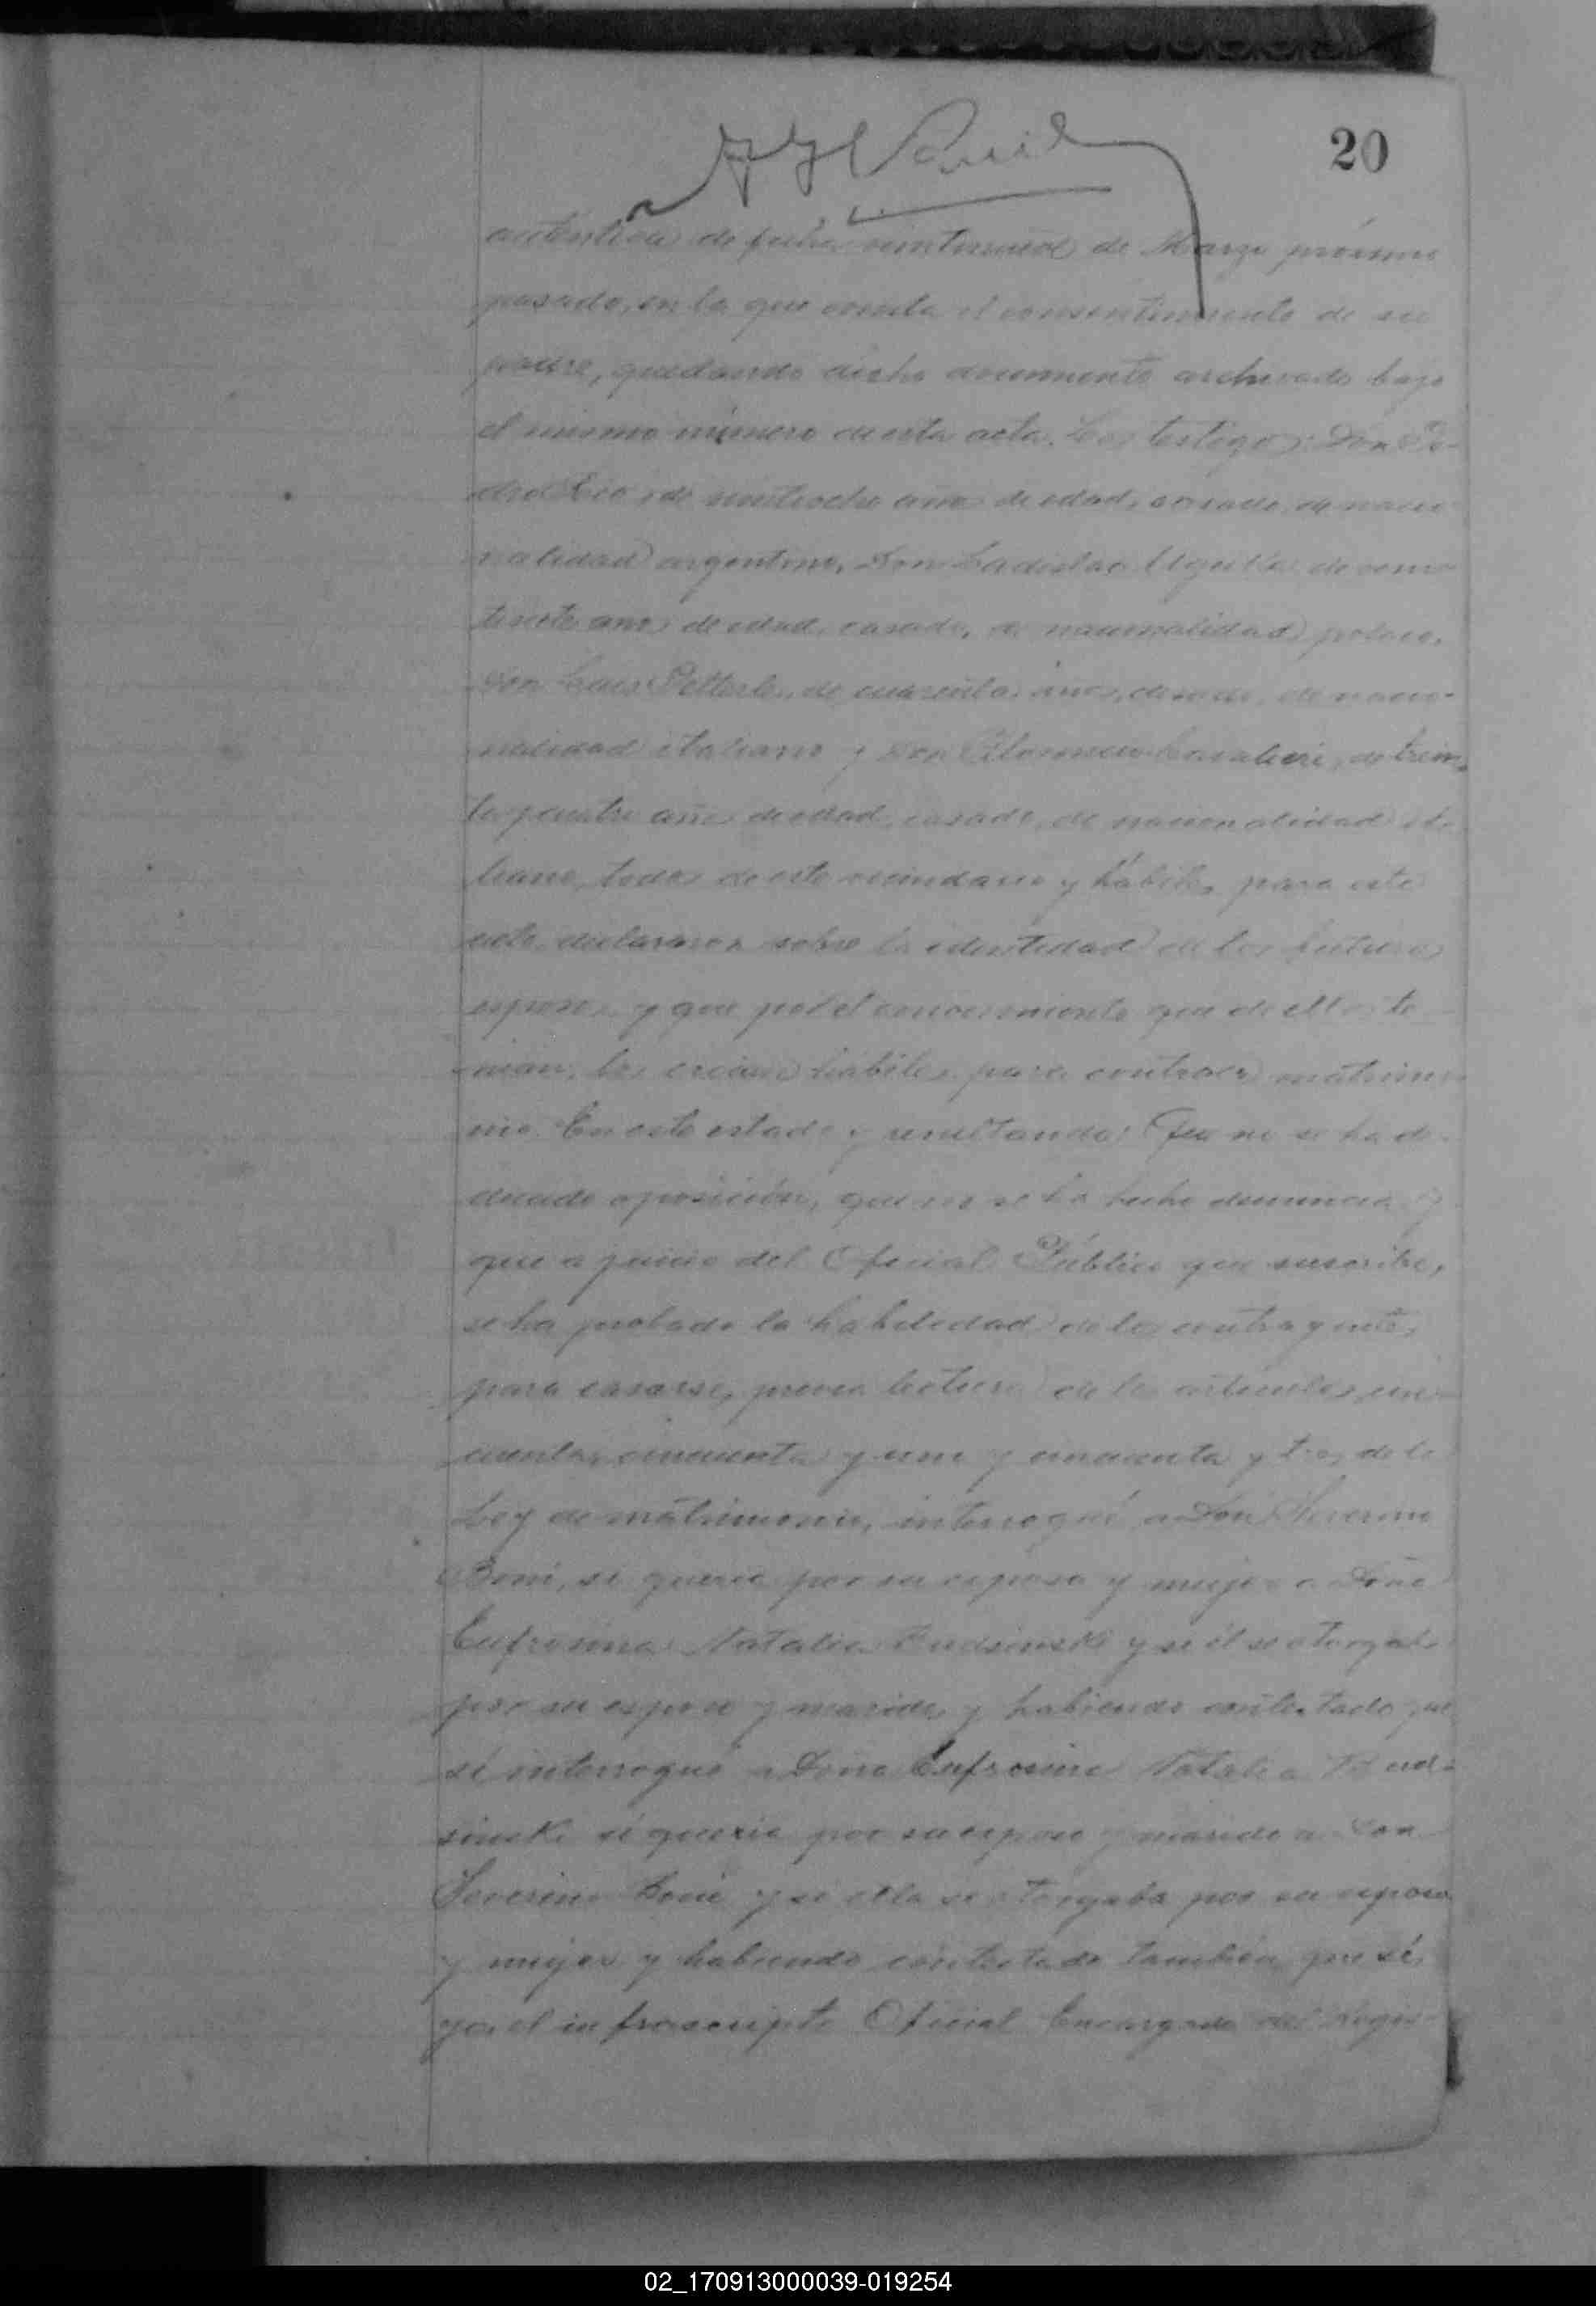 20
auténtica de fecha veintinueve de Marzo próximo
pasado, en la que consta el consentimiento de su
padre, quedando dicho documento archivado bajo
el mismo número de esta acta. Los testigos: Don Pe-
dro de veintiocho años de edad, casado, de nacio-
nalidad argentino, Don Ladislao de vein-
tisiete años de edad, casado, de nacionalidad polaco,
Don Luis Petterle, de cuarenta años, casado, de nacio-
nalidad italiano y Don Cavalieri, de trein-
ta y cuatro años de edad, casado, de nacionalidad ita-
liano, todos de este vecindario y hábiles para este
acto, declararon sobre la identidad de los futuros
esposos y que por el conocimiento que de ellos te-
nian, los creian hábiles para contraer matrimo-
nio. En este estado y resultando: Que no se ha de-
ducido oposición, que no se ha hecho denuncia y
que a juicio del Oficial Público que suscribe,
se ha probado la habilidad de los contrayentes,
para casarse, previa lectura de los artículos cin-
cuenta, cincuenta y uno y cincuenta y tres de la
Ley de matrimonio, interrogué a Don Severino
Boni, si queria por su esposa y mujer a Doña
Eufrosina Natalia Budsinski y si él se otorgaba
por su esposo y marido y habiendo contestado que
sí interrogué a Doña Eufrosina Natalia Bud-
sinski si queria por su esposo y marido a Don
Severino Boni y si ella se otorgaba por su esposa
y mujer y habiendo contestado también que sí,
yo, el infrascripto Oficial Encargado del Regis-
02_170913000039-019254